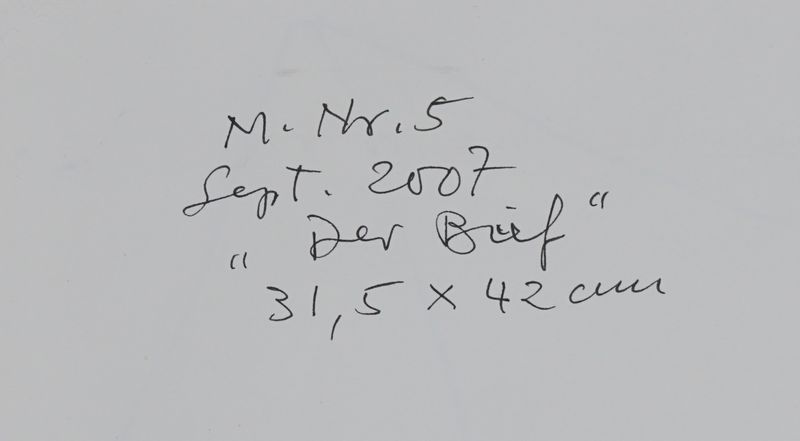 M. Nr. 5
Sept. 2007
„Der Brief“
31,5 x 42 cm